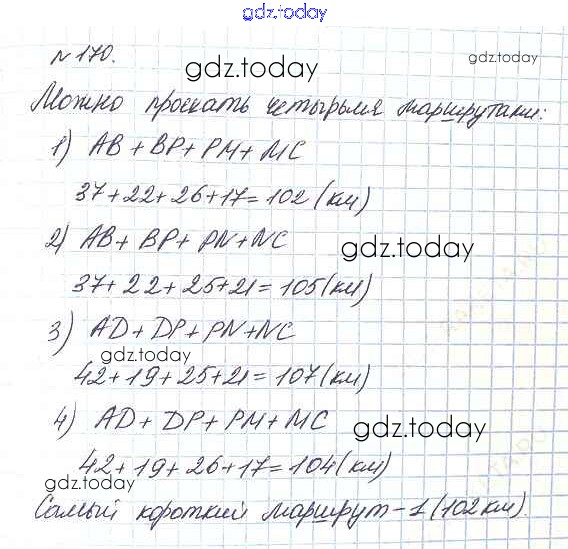 gdz.today
№170.
gdz.today
gdz.today
Можно проехать четырьмя маршрутами:
1) AB + BP + PM + MC
37+22+26+17=102 (км)
2) AB + BP + PN + NC
gdz.today
37+22+25+21=105(км)
3) AD + DP + PN + NC
gdz.today
42+19+25+21=107(км)
4) AD + DP + PM + MC
gdz.today
42+19+26+17=104(км)
gdz.today
Самый короткий маршрут-1(102км).